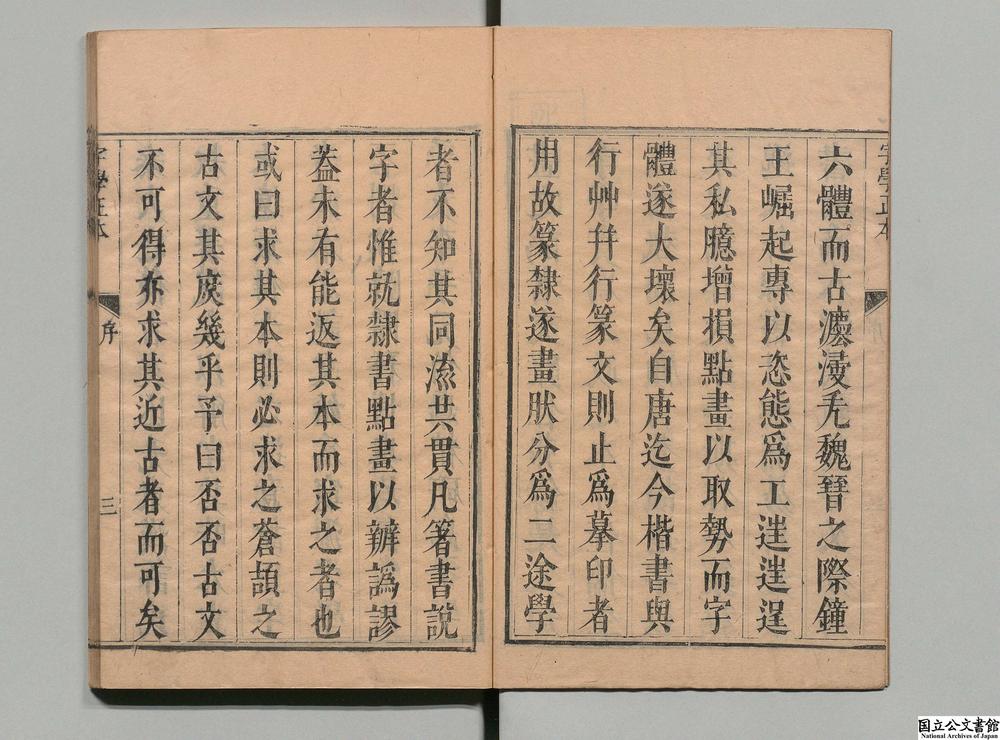 字學正本
六體而古灋漫无魏晉之際鐘
王崛起專以恣態爲工逞逞逞
其私臆增損點畫以取勢而字
體遂大壞矣自唐迄今楷書與
行艸幷行篆文則止爲摹印者
用故篆隸遂畫肰分爲二途學
者不知其同流共貫凡箸書說
字者惟就隸書點畫以辧譌謬
蓋未有能返其本而求之者也
或曰求其本則必求之蒼頡之
古文其庻幾乎予曰否否古文
不可得亦求其近古者而可矣
字學正本
序
三
国立公文書館
National Archives of Japan